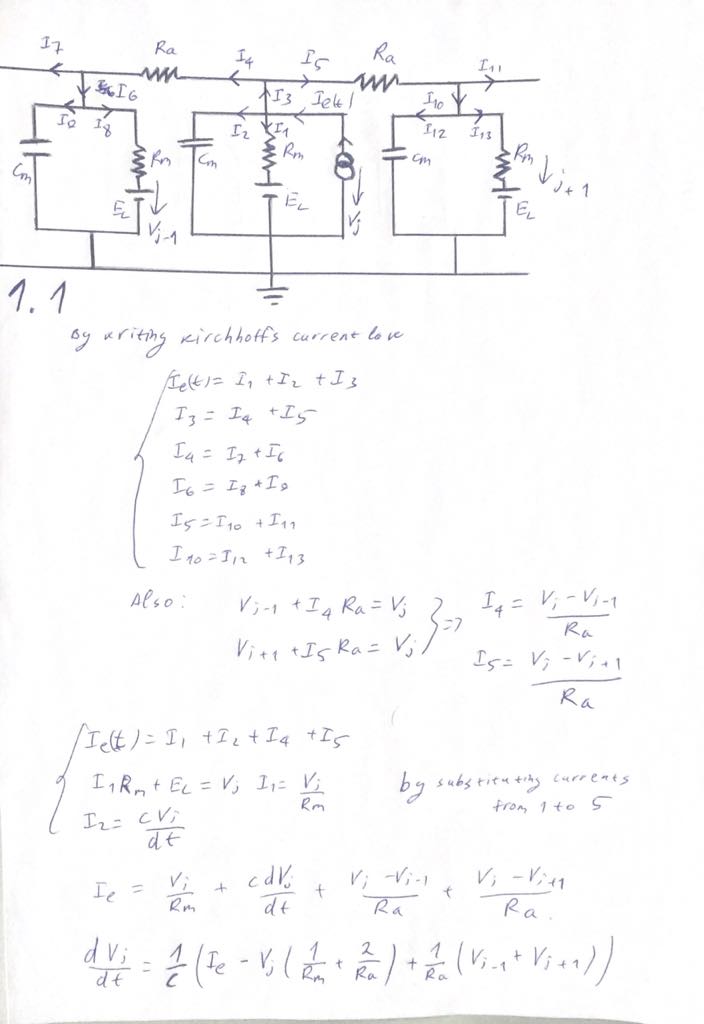 I7 Ra I4 I5 Ra I11
I6 I3 Ie(t) I10
I9 I8 I2 I1 I12 I13
Cm Rm Cm Rm Cm Rm
EL Vj-1 EL Vj EL j+1
1.1
By writing Kirchhoff's current low
Ie(t) = I1 + I2 + I3
I3 = I4 + I5
I4 = I7 + I6
I6 = I8 + I9
I5 = I10 + I11
I10 = I12 + I13
Also: Vj-1 + I4 Ra = Vj } => I4 = (Vj - Vj-1)/Ra
Vj+1 + I5 Ra = Vj I5 = (Vj - Vj+1)/Ra
Ie(t) = I1 + I2 + I4 + I5
I1 Rm + EL = Vj I1 = Vj/Rm by substituting currents
I2 = cVj/dt from 1 to 5
Ie = Vj/Rm + c dVj/dt + (Vj - Vj-1)/Ra + (Vj - Vj+1)/Ra.
dVj/dt = 1/c (Ie - Vj (1/Rm + 2/Ra) + 1/Ra (Vj-1 + Vj+1))